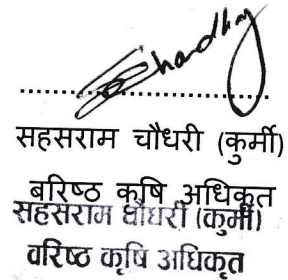 Chaudhary
.......................................
सहसराम चौधरी (कुर्मी)
बरिष्ठ कृषि अधिकृत
सहसराम चौधरी (कुर्मी)
वरिष्ठ कृषि अधिकृत